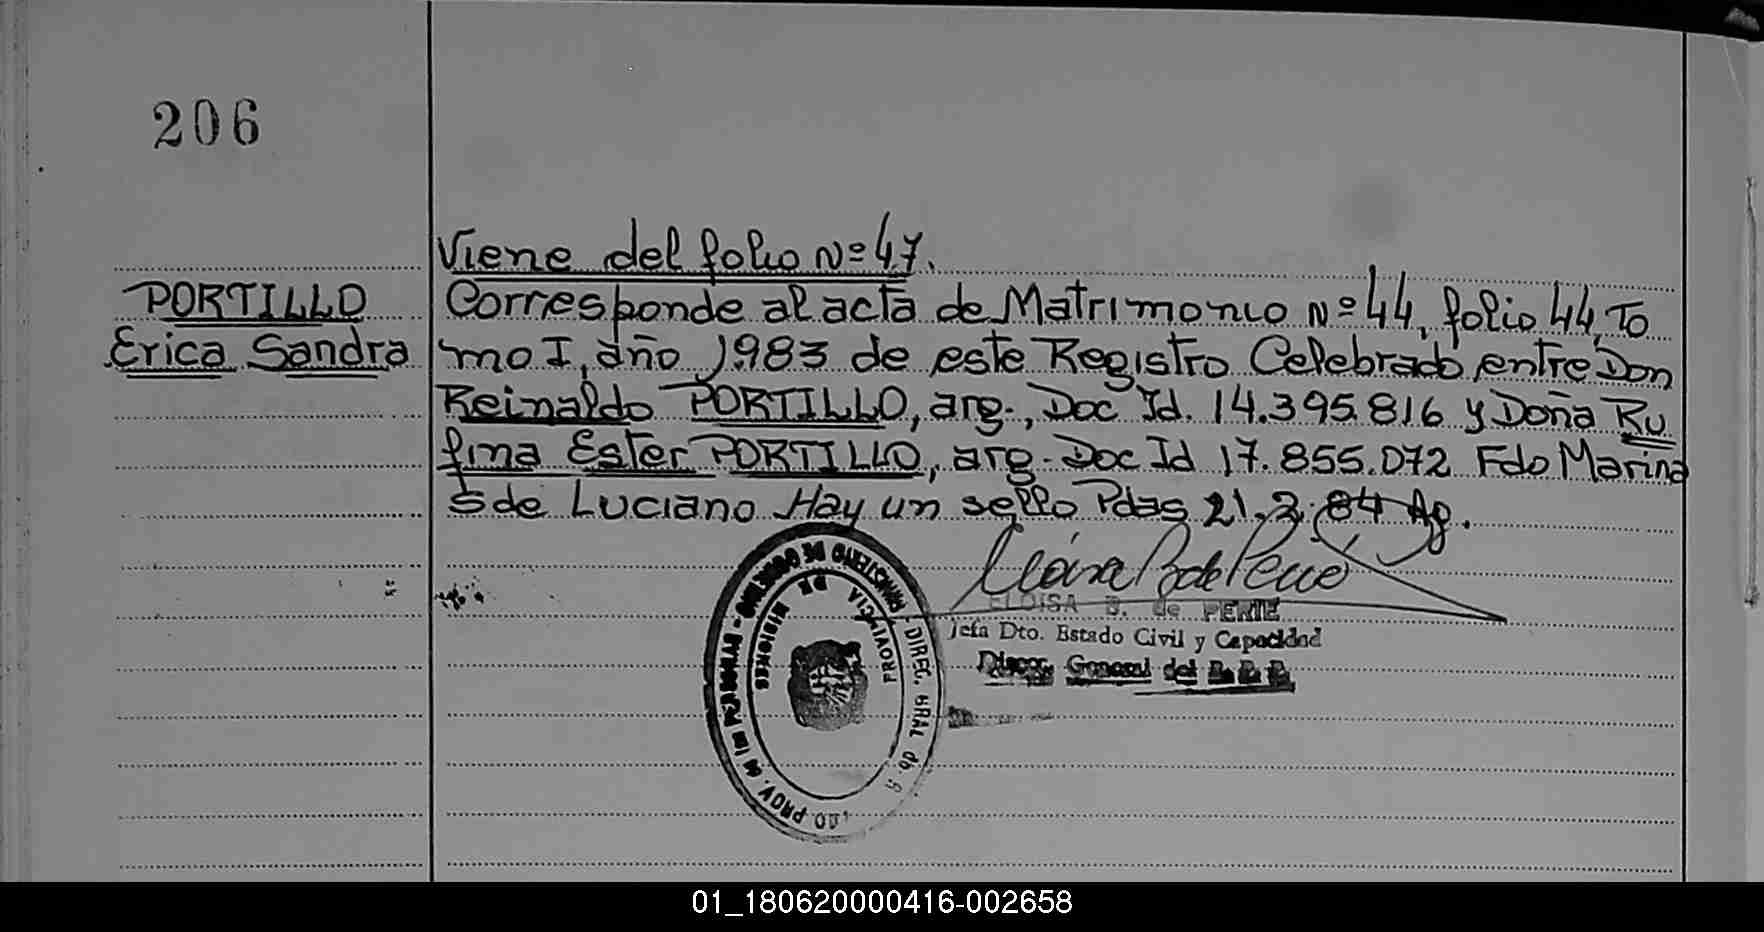 206
Viene del folio Nº 47.
PORTILLO
Erica Sandra
Corresponde al acta de Matrimonio Nº 44, folio 44, To
mo I, año 1983 de este Registro Celebrado entre Don
Reinaldo PORTILLO, arg., Doc Id. 14.395.816 y Doña Ru
fina Ester PORTILLO, arg. Doc Id 17.855.072 Fdo Marina
S de Luciano Hay un sello Pdas 21.2.84
ELOISA B. de PERIE
Jefa Dto. Estado Civil y Capacidad
General del
MINISTERIO DE GOBIERNO
DIREC. GRAL de
PROV. de las PERSONAS
PROVINCIA DE MISIONES
01_180620000416-002658